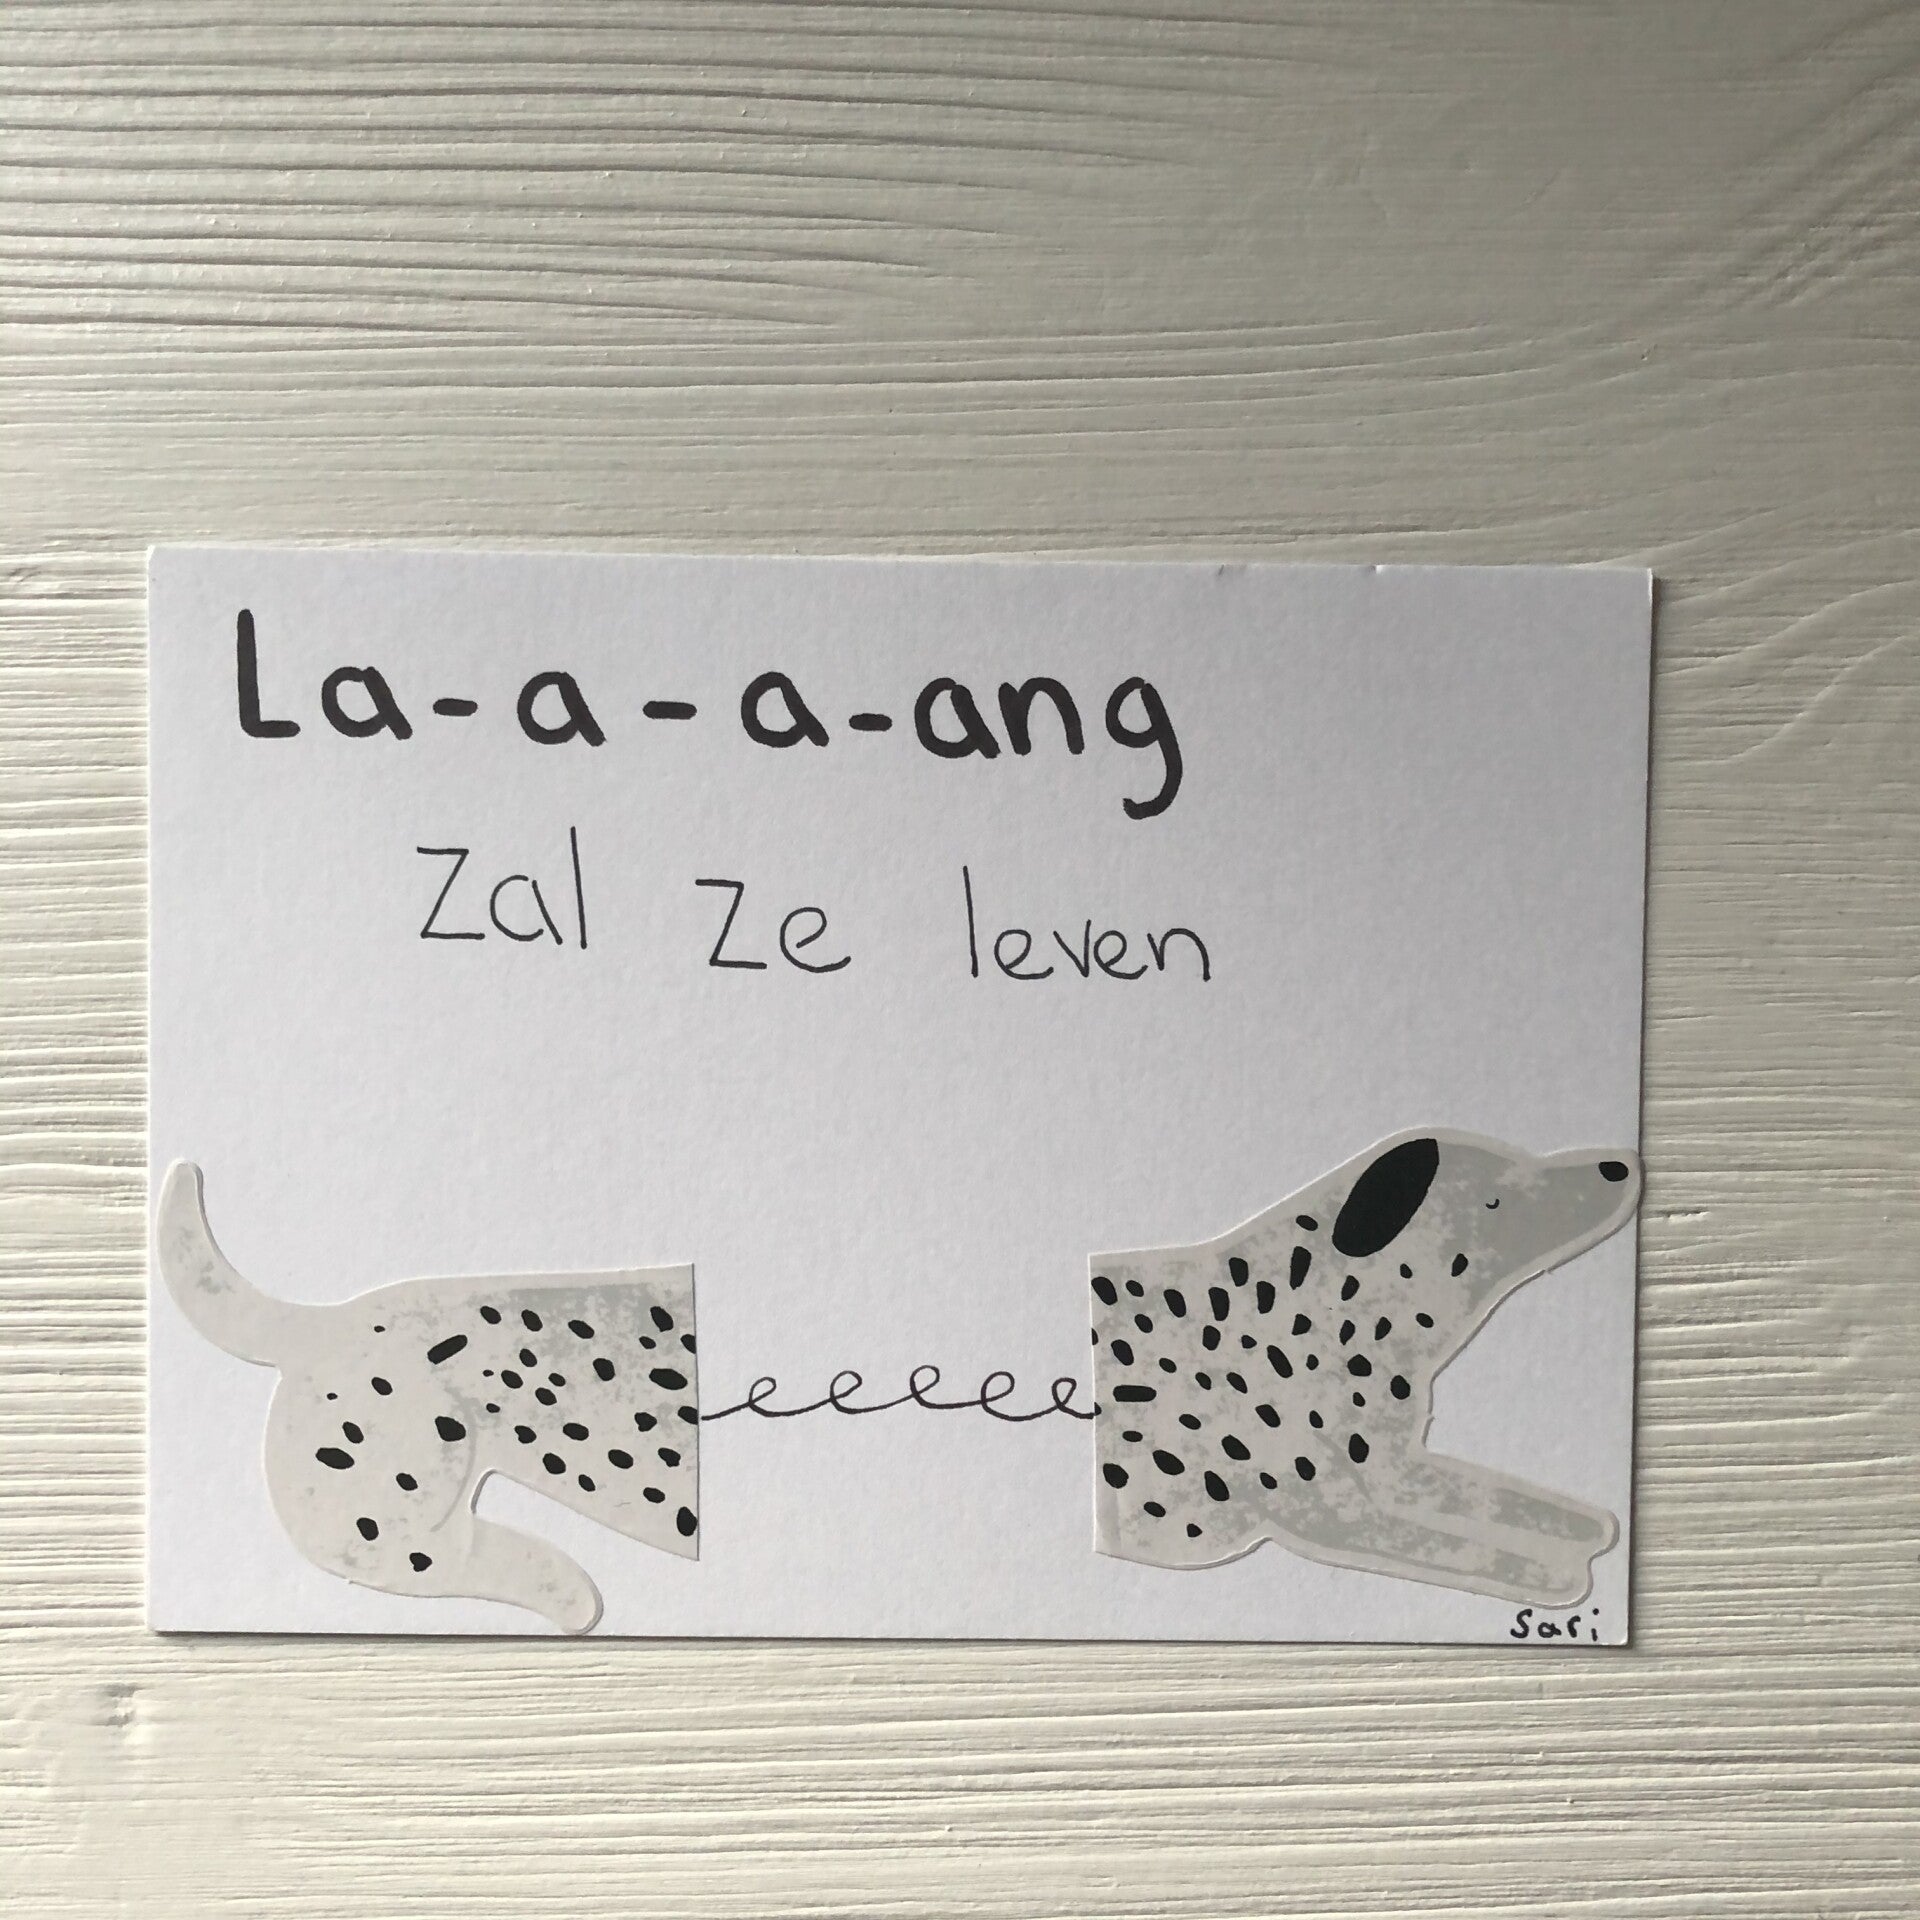 La-a-a-ang
zal ze leven
Sari